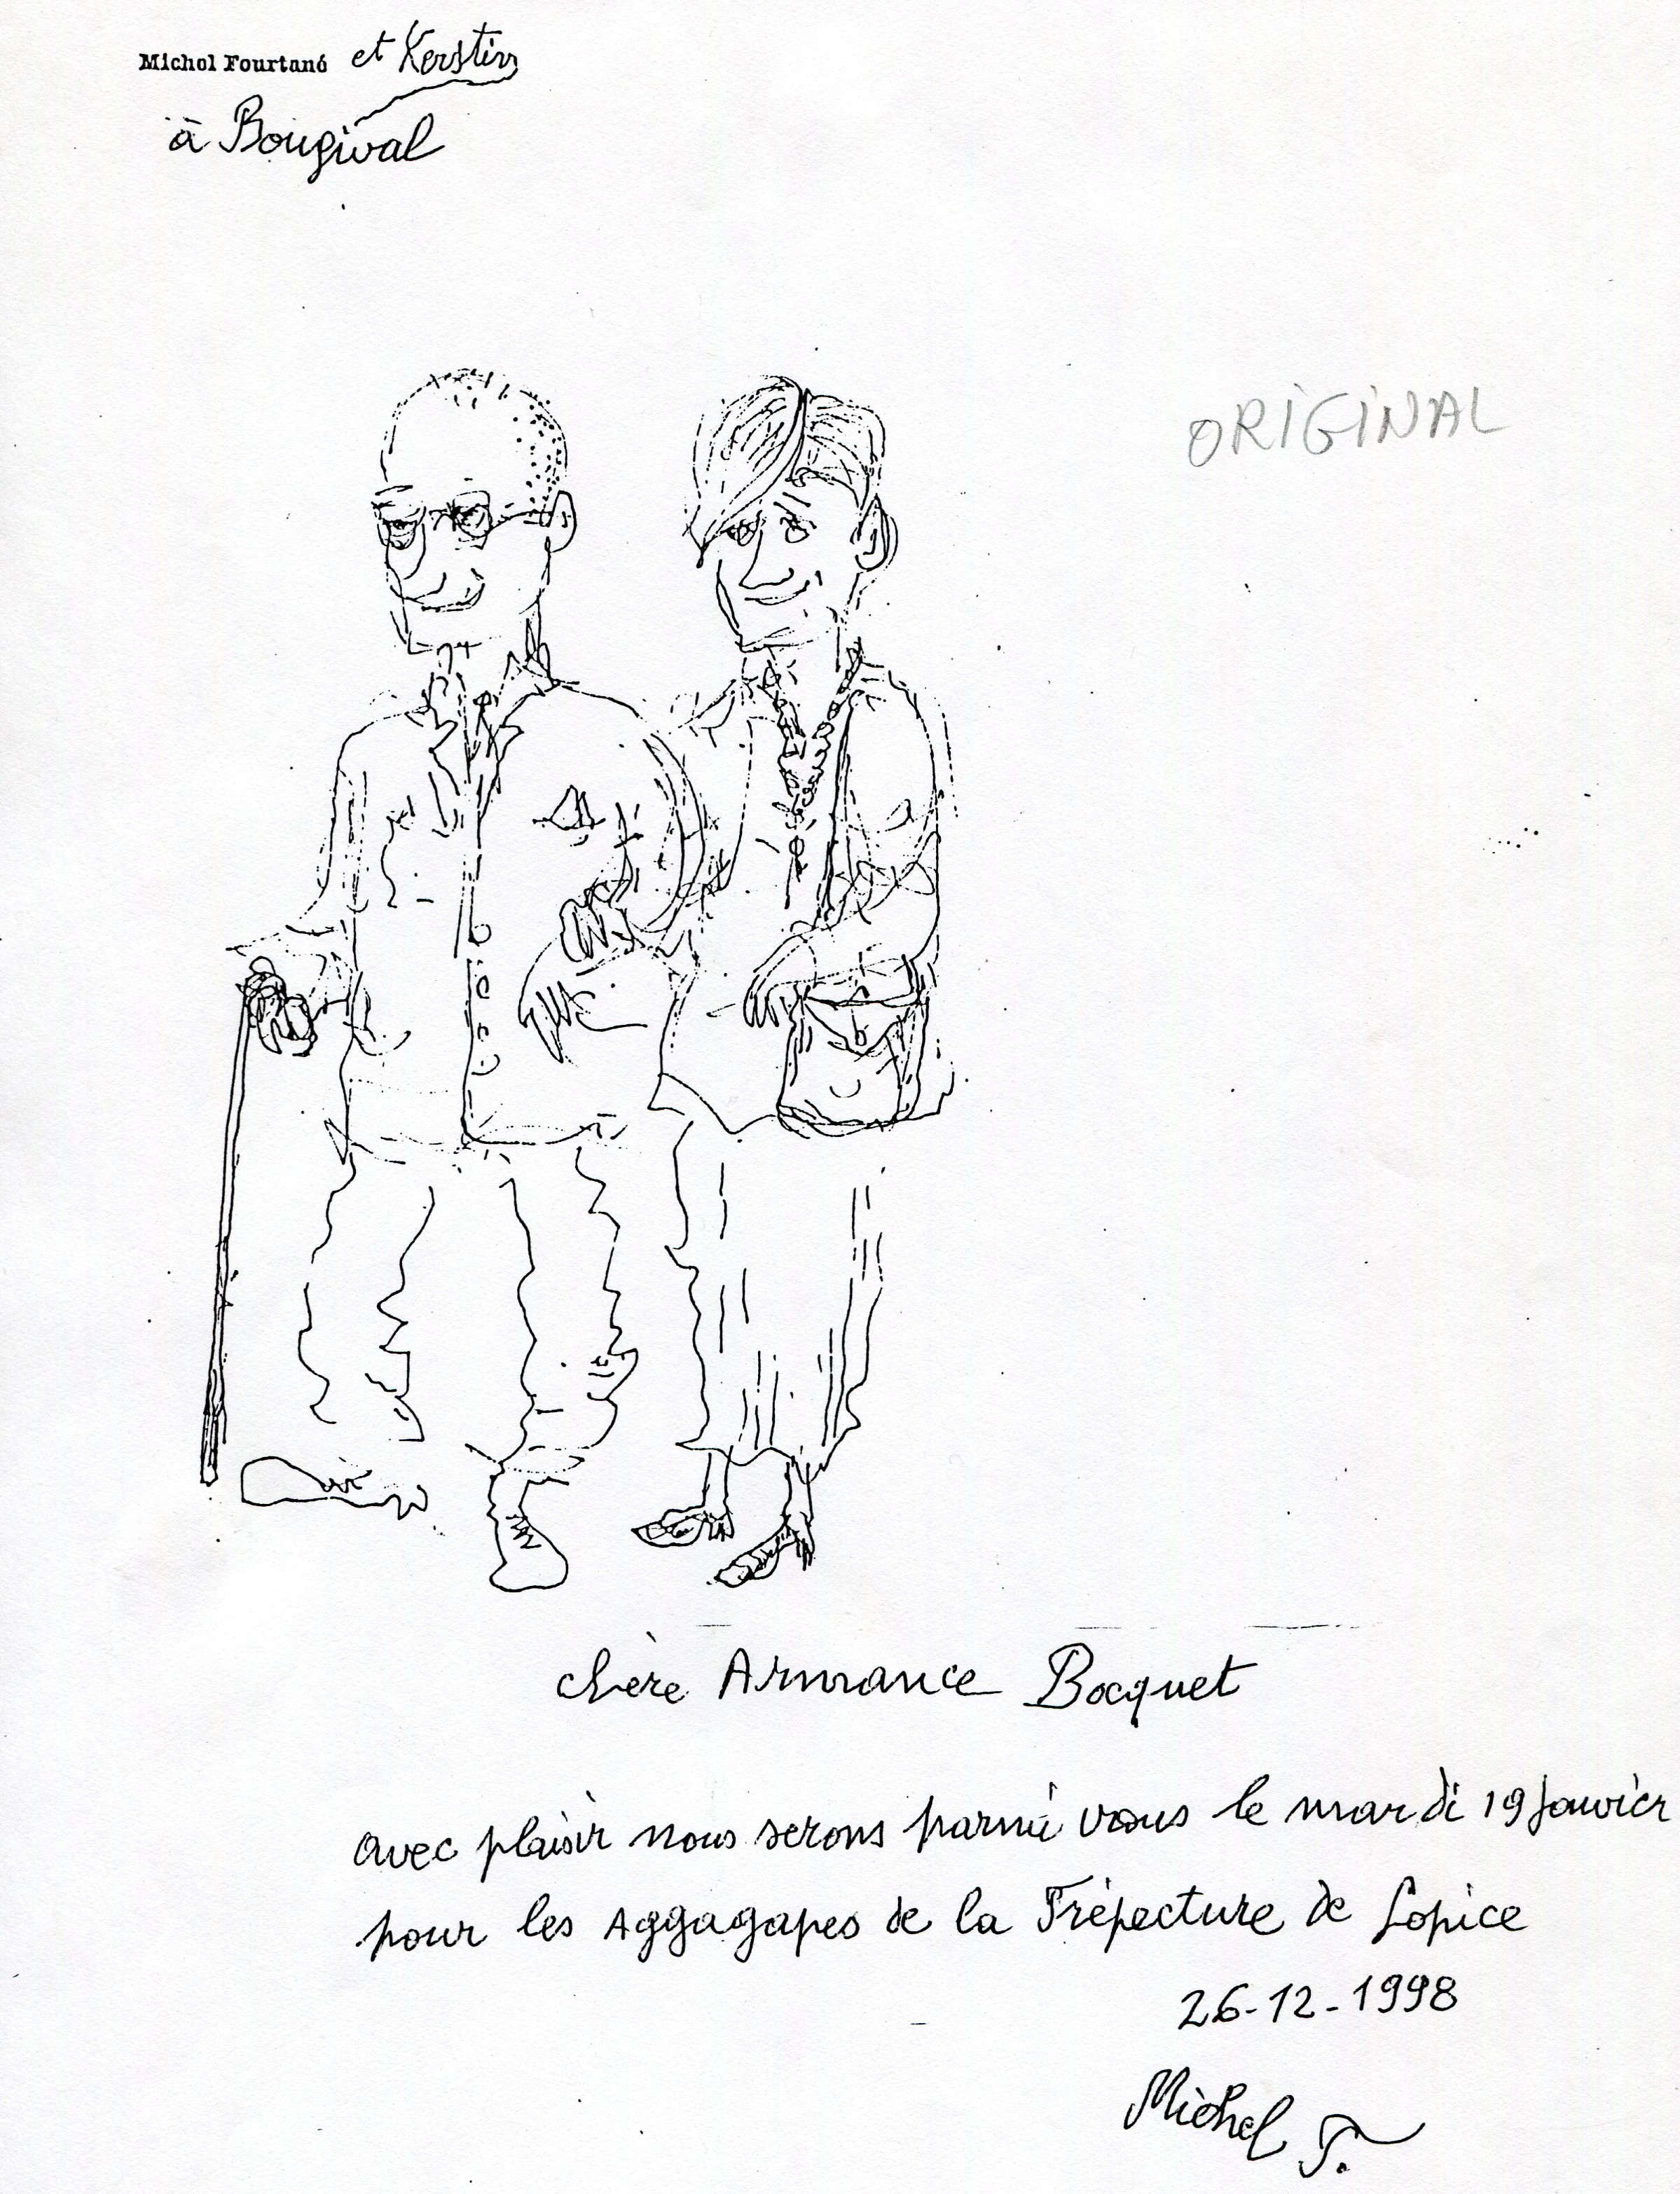 Michel Fourtané et Kerstin
à Bougival
ORIGINAL
chère Armance Bocquet
avec plaisir nous serons parmi vous le mardi 19 Janvier
pour les Aggagapes de la Frépecture de Lopice
26-12-1998
Michel F.